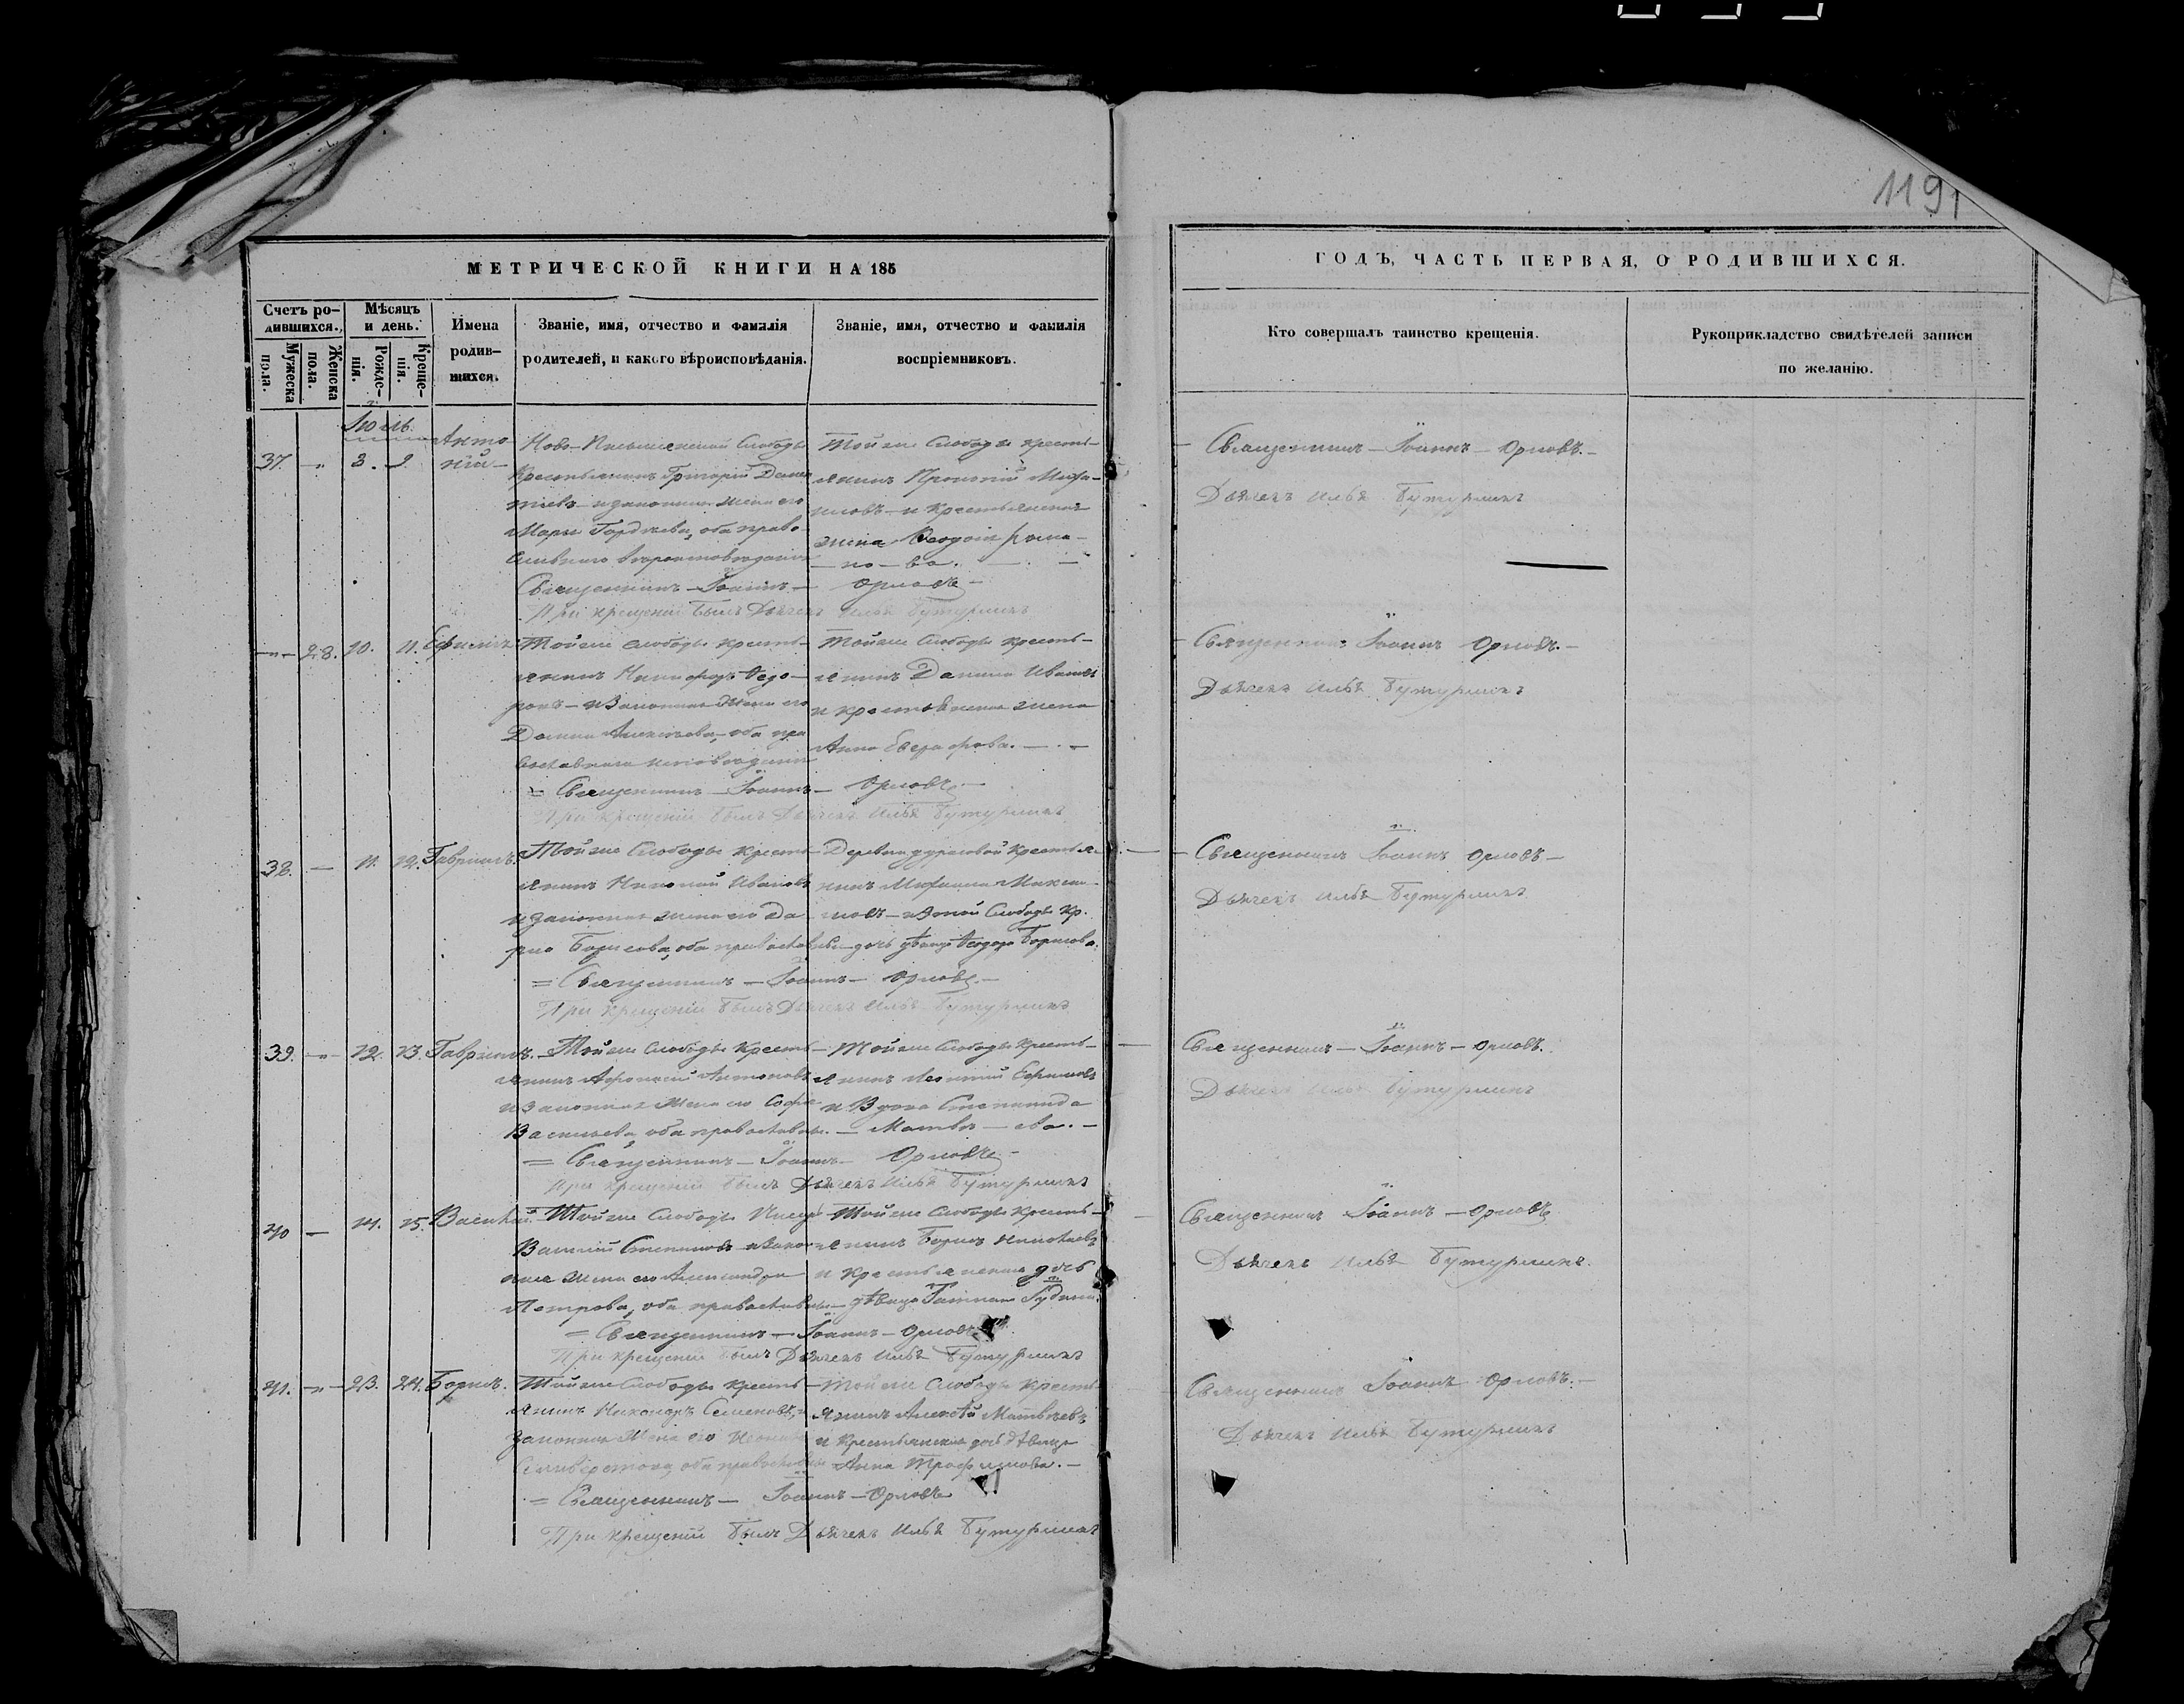 1191
МЕТРИЧЕСКОЙ КНИГИ НА 185
ГОДЪ, ЧАСТЬ ПЕРВАЯ, О РОДИВШИХСЯ.
Счетъ ро-
дившихся.
Мужеска
пола.
Женска
пола.
Мѣсяцъ
и день.
Рожде-
нія.
Креще-
нія.
Имена
родив-
шихся.
Званіе, имя, отчество и фамилія
родителей, и какого вѣроисповѣданія.
Званіе, имя, отчество и фамилія
воспріемниковъ.
Кто совершалъ таинство крещенія.
Рукоприкладство свидѣтелей записи
по желанію.
Іюль
37. 3. 9. Анто
ній
Слободы
Крестьянинъ Григорій
законная жена его
Марья оба право
Священникъ Іоаннъ Орловъ
При крещеніи былъ Дьячекъ Илья Бутурлинъ
Тойже Слободы кресть-
янинъ
и крестьянская
жена Рома-
но-ва.
Священникъ Іоаннъ Орловъ.
Дьячекъ Илья Бутурлинъ
28. 10. 11.
Тойже слободы кресть-
янинъ Никифоръ Ѳедо-
ровъ и законная жена его
оба пра
Священникъ Іоаннъ Орловъ
При крещеніи былъ Дьячекъ Илья Бутурлинъ
Тойже Слободы кресть-
янинъ Данила Ивановъ
и крестьянская жена
Анна
Священникъ Іоаннъ Орловъ.
Дьячекъ Илья Бутурлинъ
38. 11. 12. Гавріилъ.
Тойже Слободы кресть-
янинъ Николай Ивановъ
и законная жена его Да-
рья Борисова, оба
Священникъ Іоаннъ Орловъ
При крещеніи былъ Дьячекъ Илья Бутурлинъ
Деревни крестья-
нинъ
и тойже Слободы кр.
дочь дѣвица Ѳедора Борисова
Священникъ Іоаннъ Орловъ
Дьячекъ Илья Бутурлинъ
39. 12. 13. Гавріилъ.
Тойже Слободы кресть-
янинъ Антоновъ
и законная жена его Софья
Васильева, оба
Священникъ Іоаннъ Орловъ
При крещеніи былъ Дьячекъ Илья Бутурлинъ
Тойже Слободы кресть-
янинъ Леонтій Ефимовъ
и вдова Степанида
Матвѣ-ева.
Священникъ Іоаннъ Орловъ.
Дьячекъ Илья Бутурлинъ
40 14. 15. Василій
Тойже Слободы
Василій Степановъ и закон-
ная жена его Александра
Петрова, оба
Священникъ Іоаннъ Орловъ
При крещеніи былъ Дьячекъ Илья Бутурлинъ
Тойже Слободы кресть-
янинъ Борисъ
и крестьянская дочь
дѣвица
Священникъ Іоаннъ Орловъ
Дьячекъ Илья Бутурлинъ.
41. 23. 24. Борисъ.
Тойже Слободы кресть-
янинъ Никаноръ Семеновъ, и
законная жена его
Селиверстова, оба
Священникъ Іоаннъ Орловъ
При крещеніи былъ Дьячекъ Илья Бутурлинъ
Тойже Слободы кресть-
янинъ Алексѣй Матвѣевъ
и крестьянская дочь дѣвица
Анна Трофимова.
Священникъ Іоаннъ Орловъ.
Дьячекъ Илья Бутурлинъ